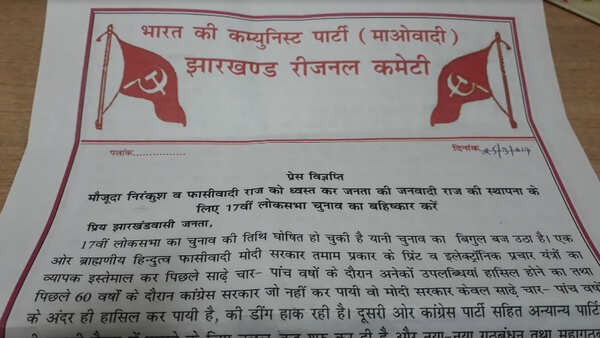 भारत की कम्युनिस्ट पार्टी ( माओवादी )
झारखण्ड रीजनल कमेटी
पत्रांक................
दिनांक
प्रेस विज्ञप्ति
मौजूदा निरंकुश व फासीवादी राज को ध्वस्त कर जनता की जनवादी राज की स्थापना के
लिए 17वीं लोकसभा चुनाव का बहिष्कार करें
प्रिय झारखंडवासी जनता,
17वीं लोकसभा का चुनाव की तिथि घोषित हो चुकी है यानी चुनाव का बिगुल बज उठा है। एक
ओर ब्राह्मणीय हिन्दुत्व फासीवादी मोदी सरकार तमाम प्रकार के प्रिंट व इलेक्ट्रॉनिक प्रचार यंत्रों का
व्यापक इस्तेमाल कर पिछले साढ़े चार- पांच वर्षो के दौरान अनेकों उपलब्धियां हासिल होने का तथा
पिछले 60 वर्षो के दौरान कांग्रेस सरकार जो नहीं कर पायी वो मोदी सरकार केवल साढ़े चार- पांच वर्षो
के अंदर ही हासिल कर पायी है, की डींग हाक रही है। दूसरी ओर कांग्रेस पार्टी सहित अन्यान्य पार्टि